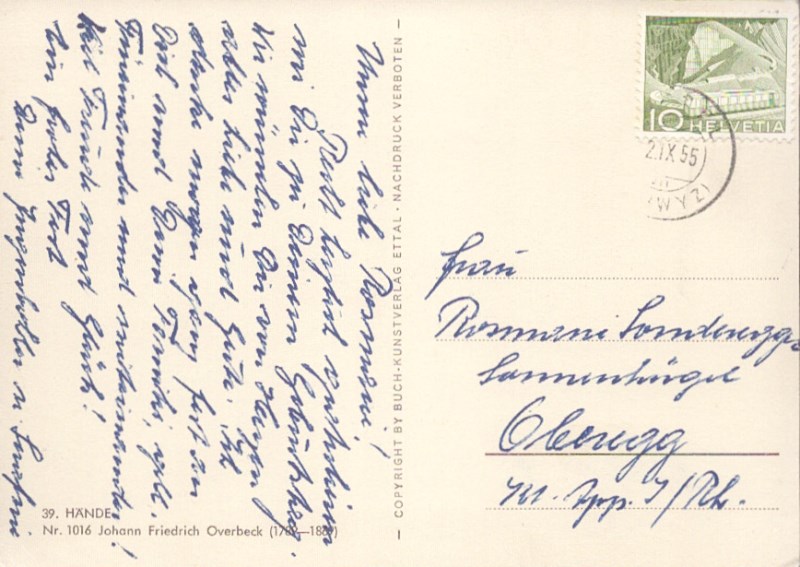 liebe Rosmarie!
Recht herzlich gratulieren
wir Dir zu Deinem Geburtstag.
Wir wünschen Dir von Herzen
alles Liebe und Gute. Ich
denke morgen ganz fest an
Dich und Deine Familie, gell.
Füreinander und miteinander!
Viel Freude und Glück!
Ein frohes Fest
Deine
39. HÄNDE
Nr. 1016 Johann Friedrich Overbeck
— COPYRIGHT BY BUCH-KUNSTVERLAG ETTAL · NACHDRUCK VERBOTEN —
10 HELVETIA
2.IX.55
WYZ)
Frau
Rosmarie Sonderegg
Sonnenhügel
Oberegg
Kt. App. I/Rh.